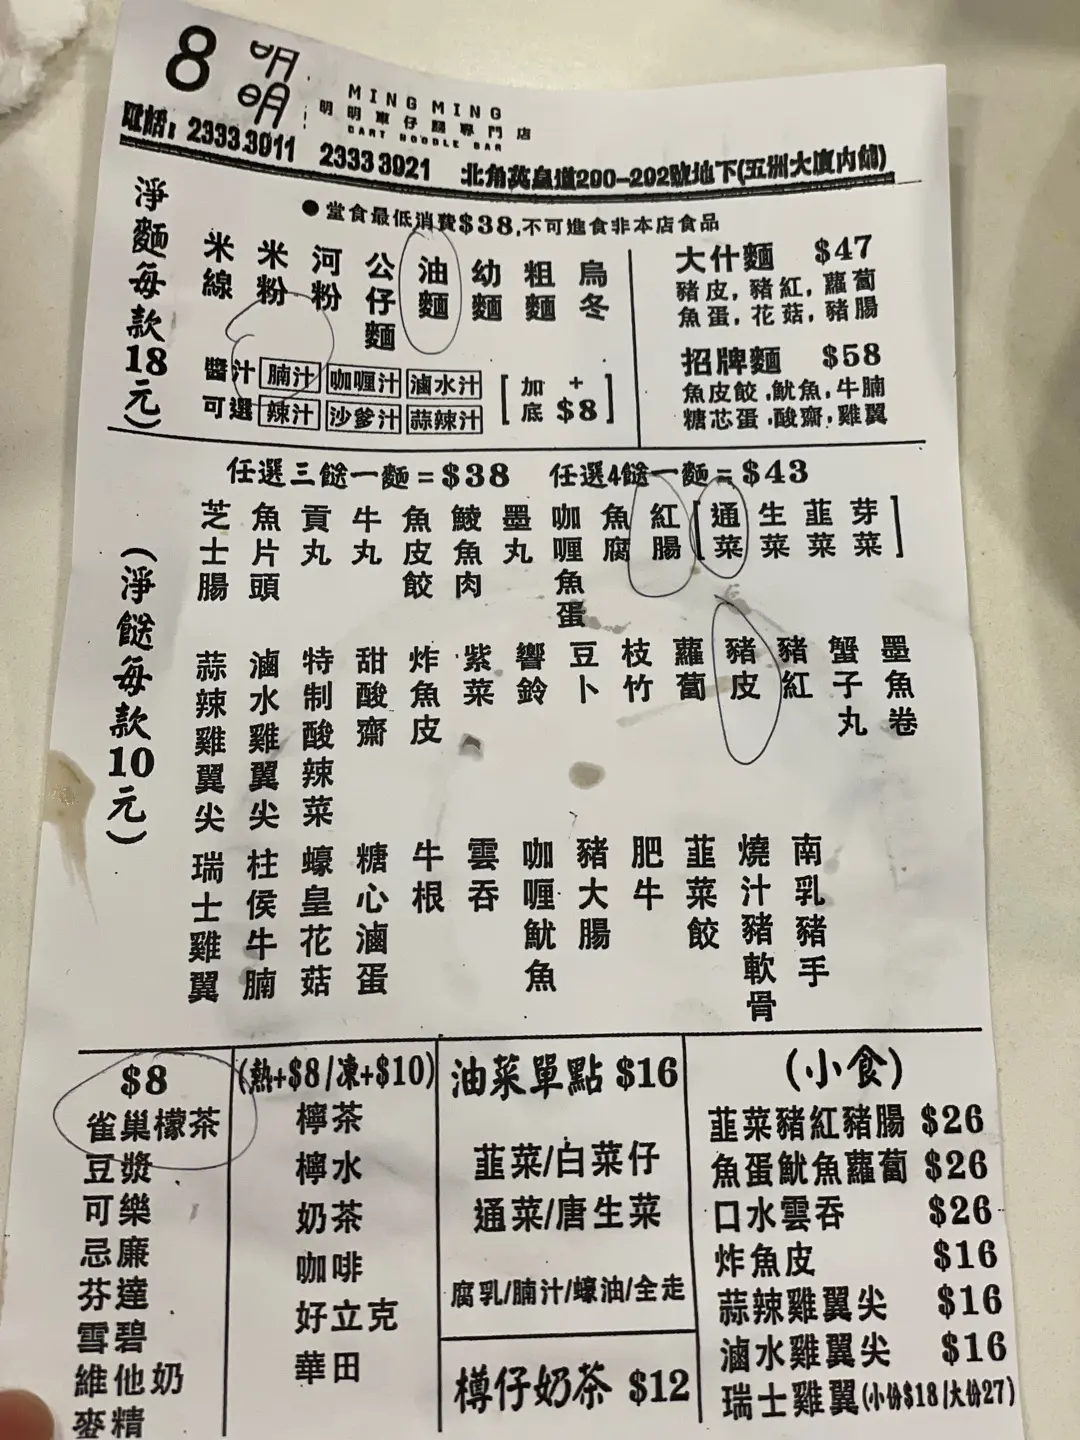 8 明明
MING MING
明明車仔麵專門店
CART NOODLE BAR
電話：2333 3911 2333 3921 北角英皇道290-292號地下(五洲大廈內舖)
●堂食最低消費$38,不可進食非本店食品
淨麵每款18元)
米線
米粉
河粉
公仔麵
油麵
幼麵
粗麵
烏冬
醬汁可選
腩汁 咖喱汁 滷水汁
辣汁 沙爹汁 蒜辣汁
[加底 +$8]
大什麵 $47
豬皮,豬紅,蘿蔔
魚蛋,花菇,豬腸
招牌麵 $58
魚皮餃,魷魚,牛腩
糖芯蛋,酸齋,雞翼
任選三餸一麵=$38 任選4餸一麵=$43
(淨餸每款10元)
芝士腸
魚片頭
貢丸
牛丸
魚皮餃
鯪魚肉
墨丸
咖喱魚蛋
魚腐
紅腸
[通菜
生菜
韮菜
芽菜]
蒜辣雞翼尖
滷水雞翼尖
特制酸辣菜
甜酸齋
炸魚皮
紫菜
響鈴
豆卜
枝竹
蘿蔔
豬皮
豬紅
蟹子丸
墨魚卷
瑞士雞翼
柱侯牛腩
蠔皇花菇
糖心滷蛋
牛根
雲吞
咖喱魷魚
豬大腸
肥牛
韮菜餃
燒汁豬軟骨
南乳豬手
$8
雀巢檬茶
豆漿
可樂
忌廉
芬達
雪碧
維他奶
麥精
(熱+$8/凍+$10)
檸茶
檸水
奶茶
咖啡
好立克
華田
油菜單點 $16
韮菜/白菜仔
通菜/唐生菜
腐乳/腩汁/蠔油/全走
樽仔奶茶 $12
(小食)
韮菜豬紅豬腸 $26
魚蛋魷魚蘿蔔 $26
口水雲吞 $26
炸魚皮 $16
蒜辣雞翼尖 $16
滷水雞翼尖 $16
瑞士雞翼(小份$18/大份27)